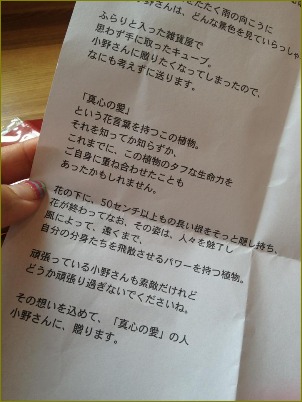 たたく雨の向こうに
小野さんは、どんな景色を見ていらっしゃ
ふらりと入った雑貨屋で
思わず手に取ったキューブ。
小野さんに贈りたくなってしまったので、
なにも考えずに送ります。
「真心の愛」
という花言葉を持つこの植物。
それを知ってか知らずか、
これまでに、この植物のタフな生命力を
ご自身に重ね合わせたことも
あったかもしれません。
花の下に、50センチ以上もの長い根をそっと隠し持ち、
花が終わってなお、その姿は、人々を魅了し
風によって、遠くまで、
自分の分身たちを飛散させるパワーを持つ植物。
頑張っている小野さんも素敵だけれど
どうか頑張り過ぎないでくださいね。
その想いを込めて、「真心の愛」の人
小野さんに、贈ります。